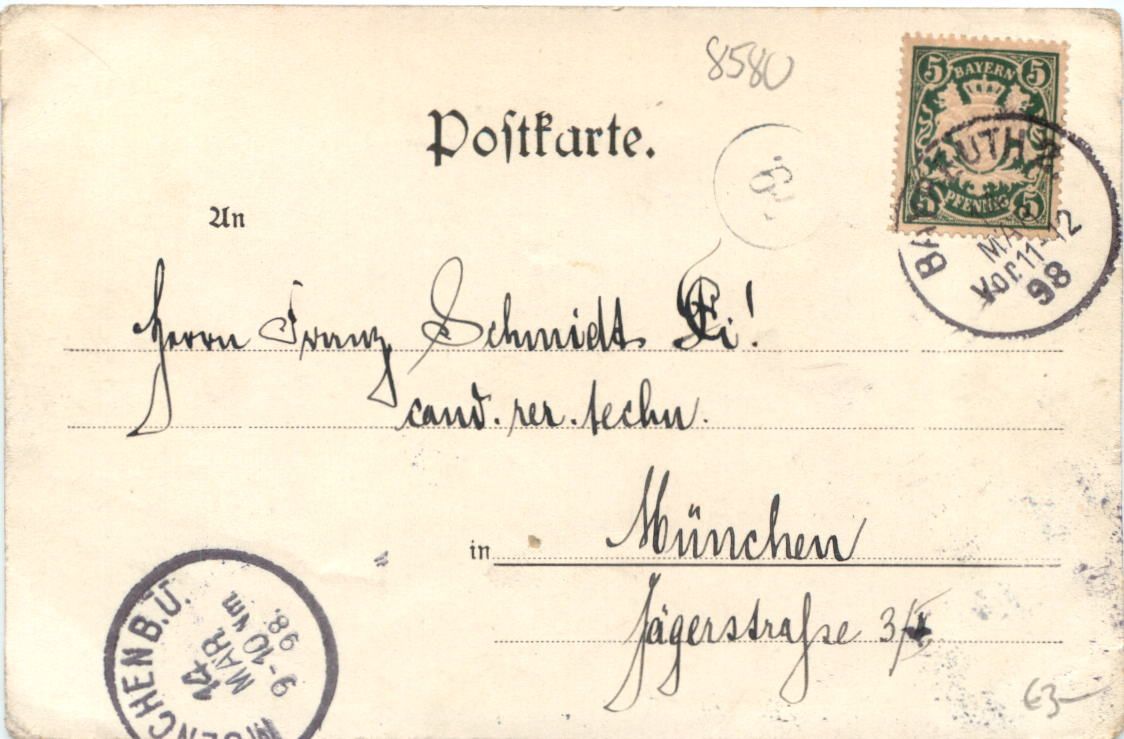 8580
5 BAYERN 5
5 PFENNIG 5
BAYREUTH
MAR
Vor. 11-12
98
Postkarte.
An
Herrn Franz Schmidt
cand. rer. techn.
in München
Jägerstraße 3/
MUENCHEN B.U.
14
MAR.
9-10 Vm.
98.
€3-